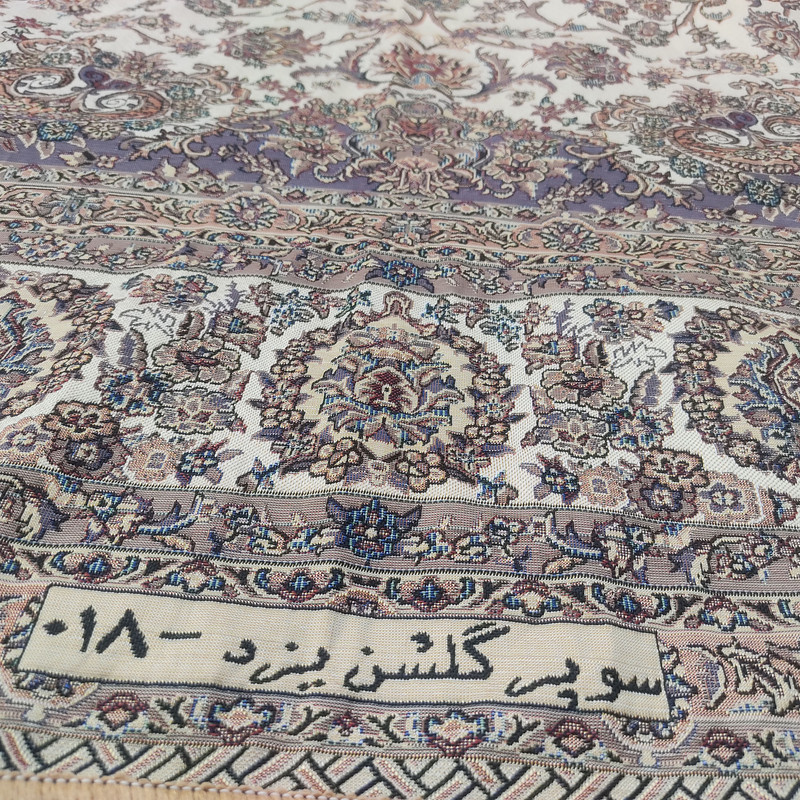 سوپر گلشن یزد - ۰۱۸